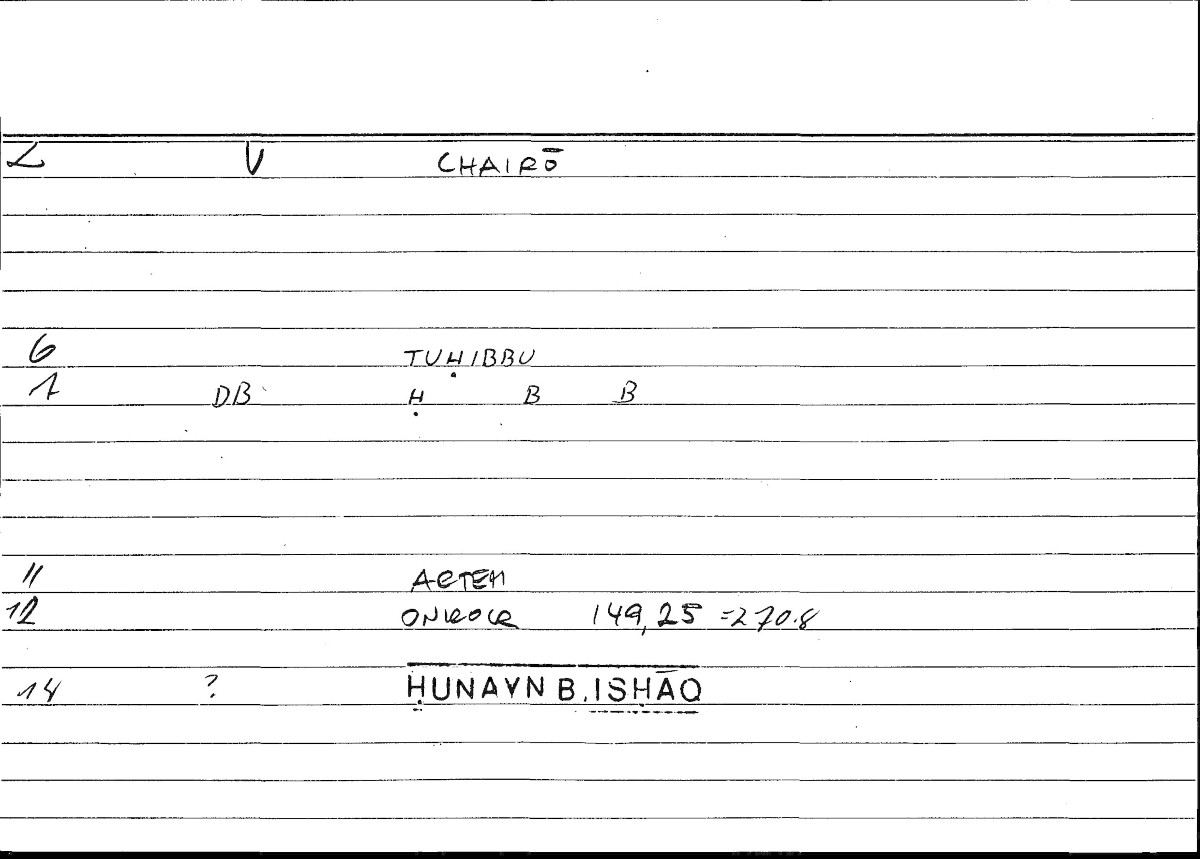 L V CHAIRŌ
6 TUḤIBBU
1 DB Ḥ B B
11 ARTEM
12 ONIROCR 149,25 =270.8
14 ? ḤUNAYN B. ISḤĀQ